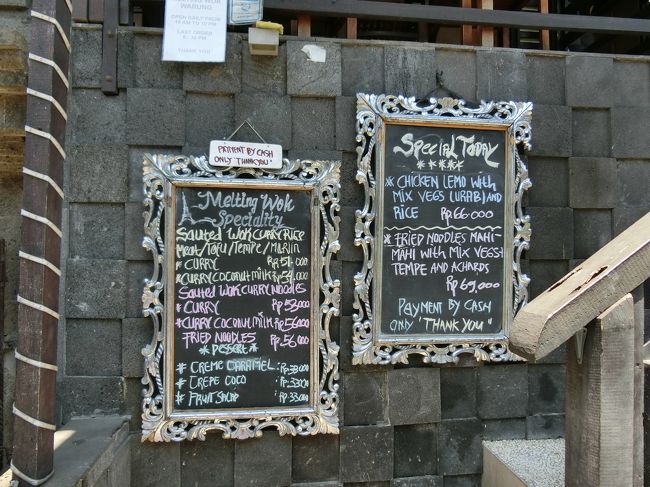 WOK WARUNG
OPEN DAILY FROM
10 AM TO 10 PM
LAST ORDER
8:30 PM
THANK YOU
PAYMENT BY CASH
ONLY THANKYOU"
Melting Wok
Speciality
Sauted Wok Curry Rice
Meat/Tofu/Tempe/
* CURRY Rp 51.000
* CURRY COCONUT MILK Rp 54.000
Sauted Wok Curry Noodles
* CURRY Rp 53.000
* CURRY COCONUT MILK Rp 56.000
FRIED NOODLES Rp 56.000
* Dessert *
* CREME CARAMEL Rp.33.000
* CREPE COCO Rp.33.000
* FRUIT SALAD Rp 33.000
Special Today
* * * *
* CHICKEN LEMO WITH
MIX VEGS (URAB) AND
RICE Rp 66.000
* FRIED NOODLES MAHI-
MAHI WITH MIX VEGST
TEMPE AND ACHARDS
Rp 69.000
PAYMENT BY CASH
ONLY "THANK YOU"